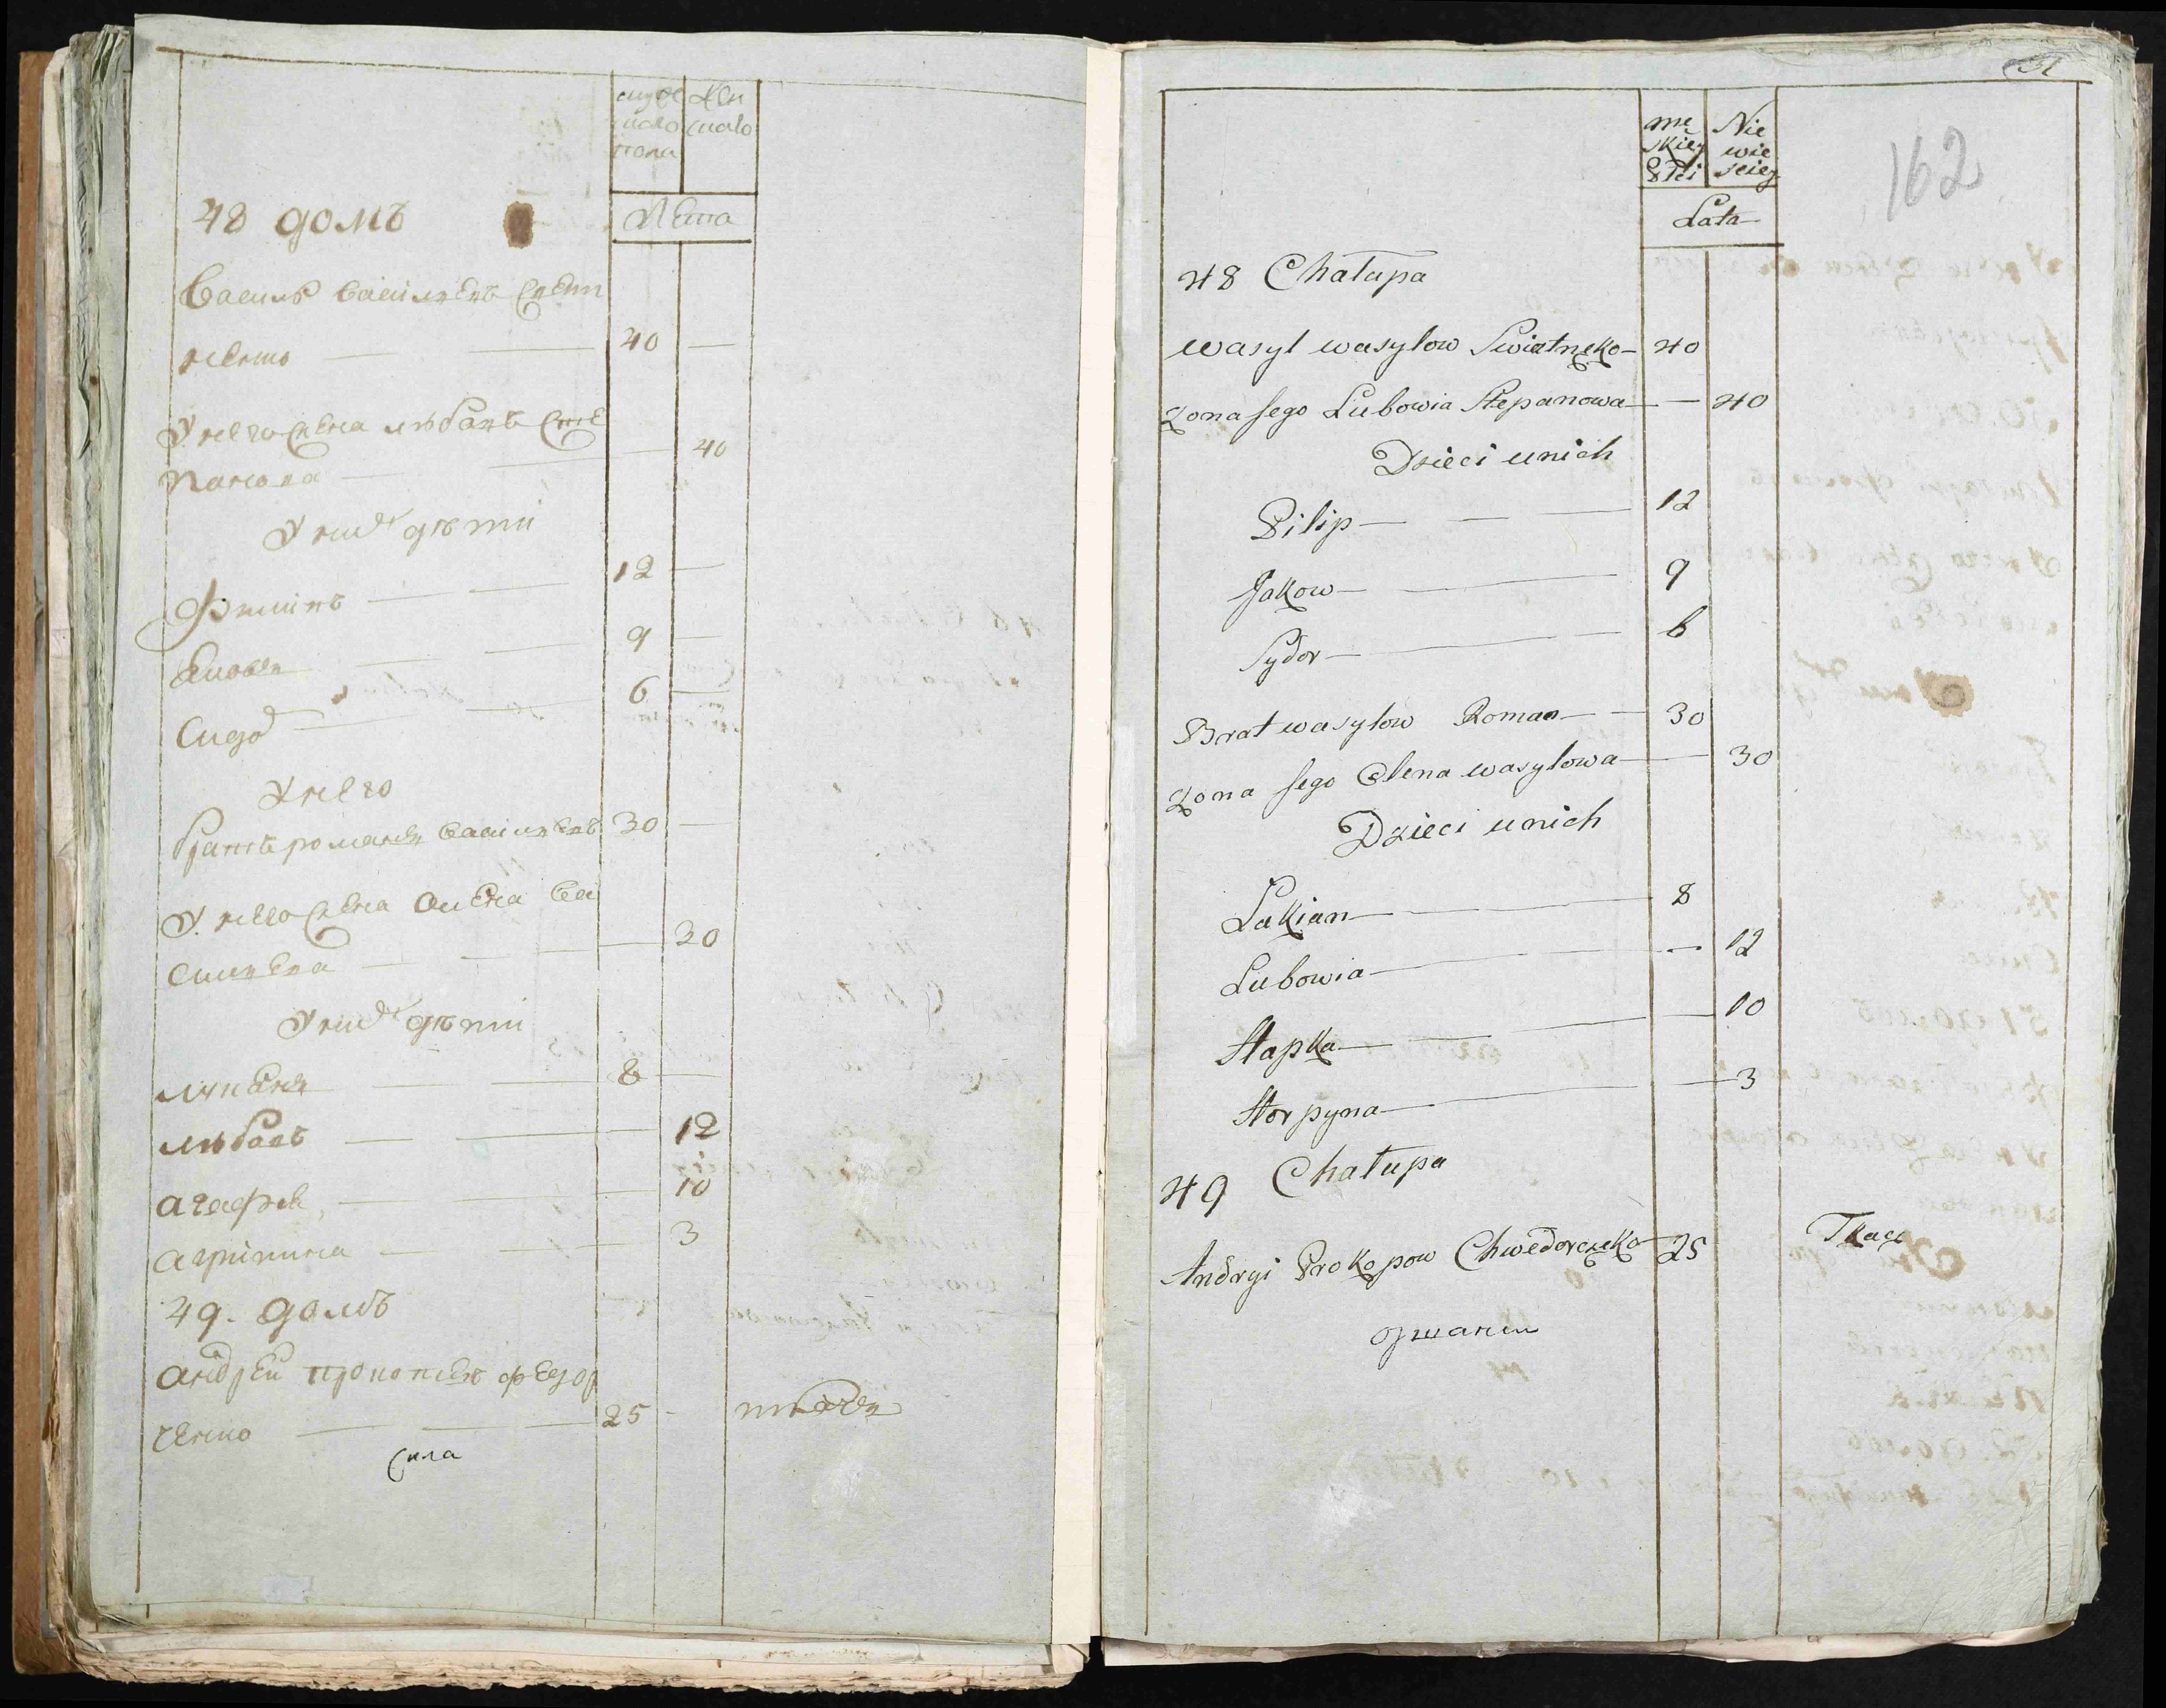 муже Жен
скаго скаго
пола
Лета
48 домъ
Василь василѣвъ свѣт
ненко — 40 —
У него жена любовь сте
панова — 40
У нихъ дѣти
Филипъ — 12 —
Яковъ — 9 —
Сидоръ — 6 —
У него
братъ романъ василѣвъ 30 —
У него жена олена ва
силѣва — 30
У нихъ дѣти
лукіянъ — 8 —
любовь — 12
агафія — 10
агрипина — 3
49. домъ
андрей прокопіевъ федор
ченко — 25 - ткачъ
51
162
mę Nie
skiey wie
Płci sciey
Lata
48 Chałupa
wasyl wasylow Swiatnęko — 40
zona jego Lubowia Stepanowa — 40
Dzieci unich
Pilip — 12
Jakow — 9
Sydor — 6
Brat wasylow Roman — 30
zona jego Olena wasylowa — 30
Dzieci unich
Lukian — 8
Lubowia — 12
Hapka — 10
Horpyna — 3
49 Chałupa
Andryi Prokopow Chwedorczęko 25 Tkacz